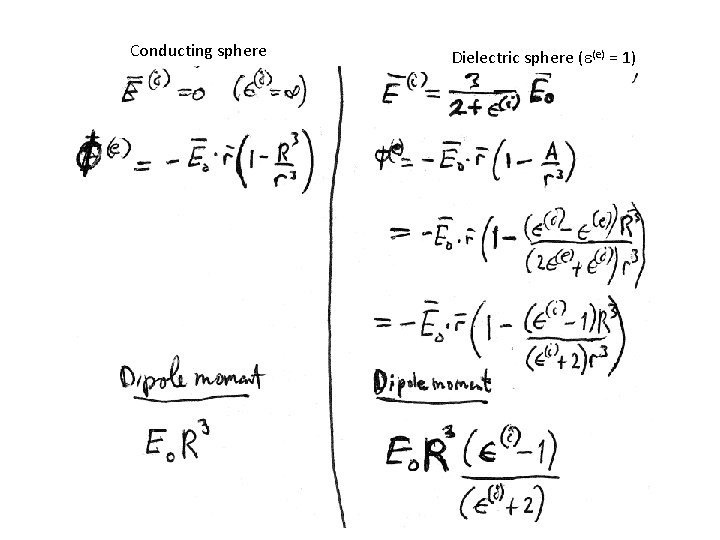 Conducting sphere
Ē⁽ⁱ⁾ = 0 (ϵ⁽ⁱ⁾ = ∞)
ϕ⁽ᵉ⁾ = - Ē₀ · r̄ (1 - R³/r³)
Dipole moment
E₀R³
Dielectric sphere (ε(e) = 1)
Ē⁽ⁱ⁾ = 3/(2+ϵ⁽ⁱ⁾) Ē₀
ϕ⁽ᵉ⁾ = - Ē₀ · r̄ (1 - A/r³)
= - Ē₀ · r̄ (1 - (ϵ⁽ⁱ⁾ - ϵ⁽ᵉ⁾)R³/(2ϵ⁽ᵉ⁾ + ϵ⁽ⁱ⁾)r³)
= - Ē₀ · r̄ (1 - (ϵ⁽ⁱ⁾ - 1)R³/(ϵ⁽ⁱ⁾ + 2)r³)
Dipole moment
E₀R³ (ϵ⁽ⁱ⁾ - 1)/(ϵ⁽ⁱ⁾ + 2)